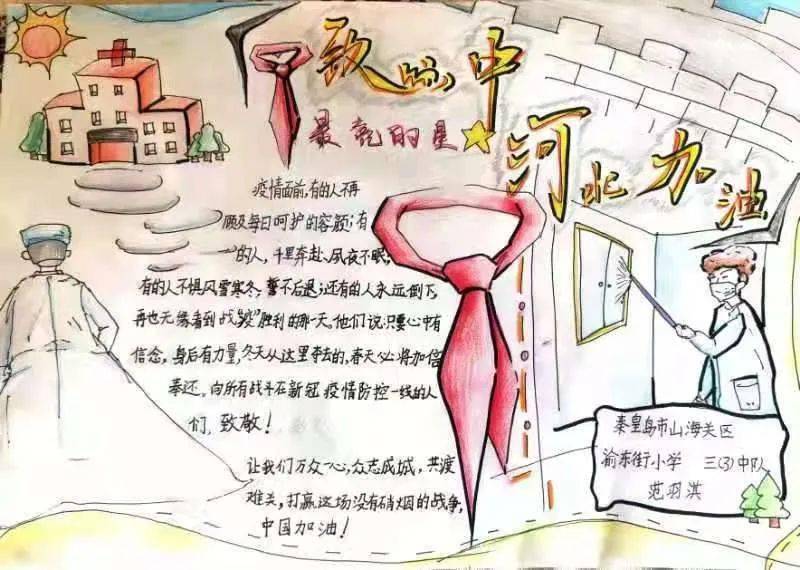 致 心 中
最亮的星
河北加油
疫情面前,有的人不再
顾及每日呵护的容颜;有
的人,千里奔赴、夙夜不眠;
有的人不惧风雪寒冬,誓不后退;还有的人永远倒下,
再也无缘看到战“疫”胜利的那一天。他们说:只要心中有
信念,身后有力量,冬天从这里夺去的,春天必将加倍
奉还。向所有战斗在新冠疫情防控一线的人
们,致敬!
让我们万众一心,众志成城,共渡
难关,打赢这场没有硝烟的战争,
中国加油!
秦皇岛市山海关区
渝东街小学 三(3)中队
范羽淇